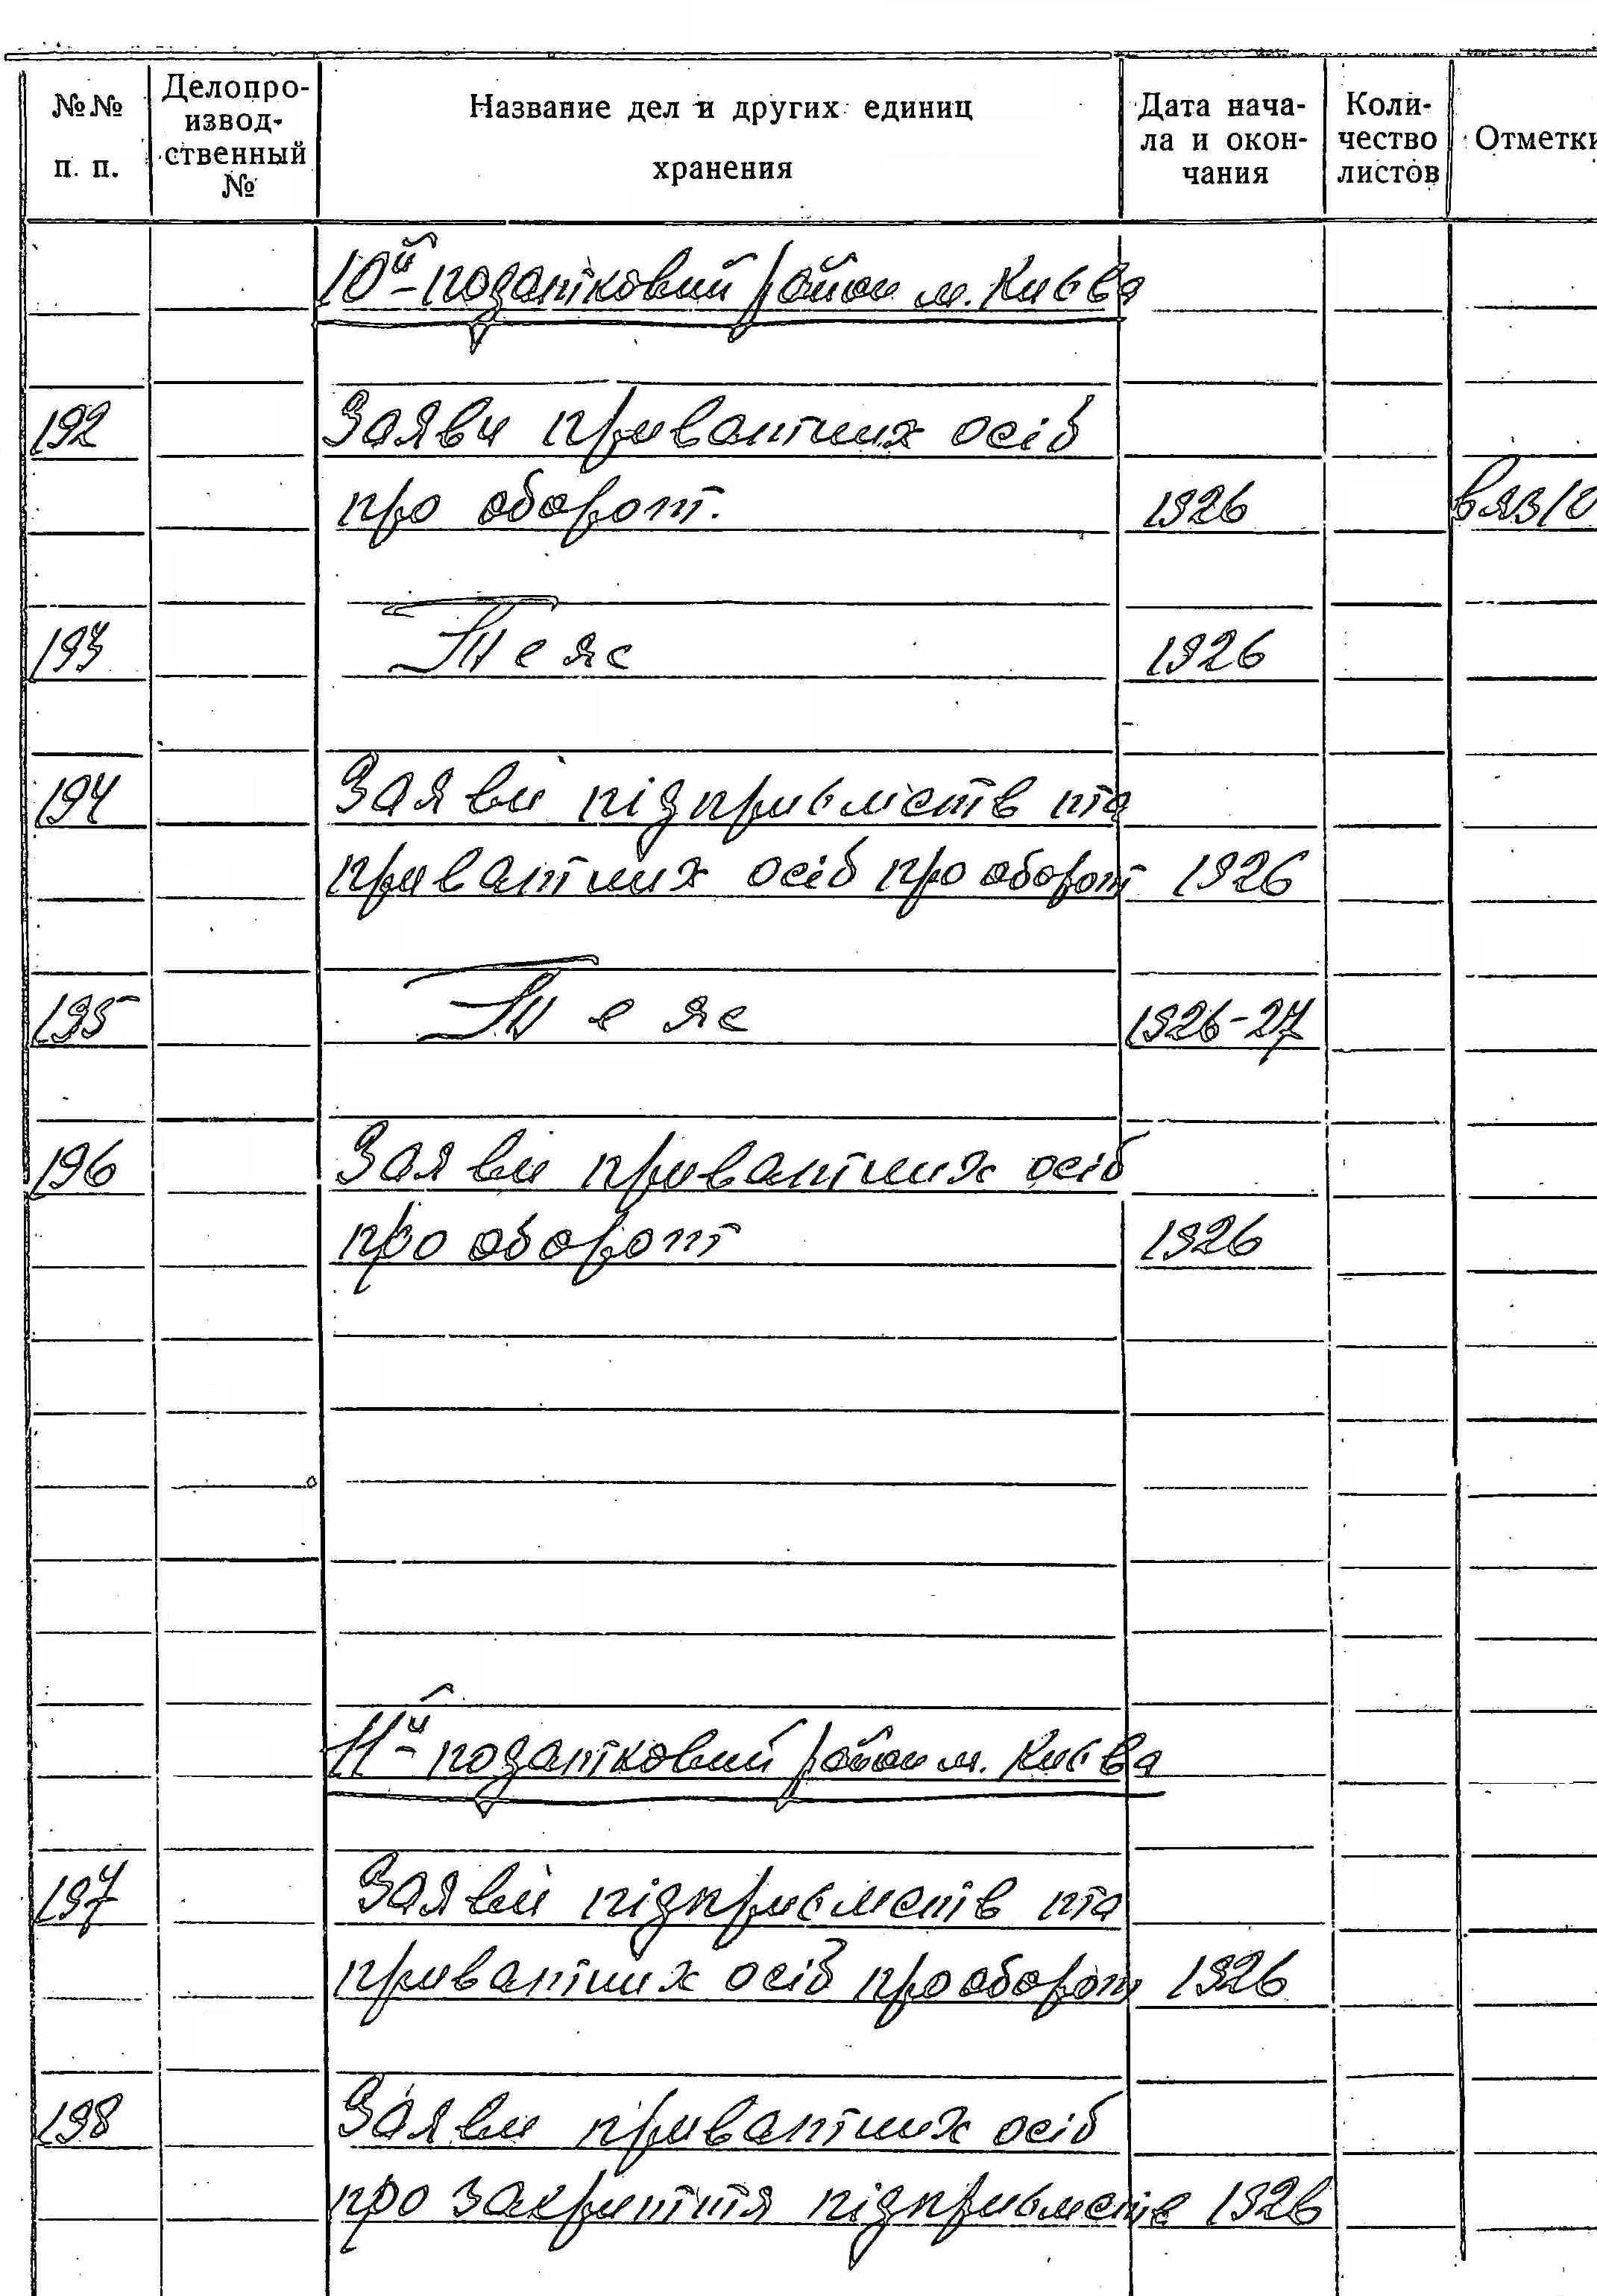 №№ п. п. Делопроизводственный № Название дел и других единиц хранения Дата начала и окончания Количество листов Отметки
10й- податковий район м. Києва
192 Заяви приватних осіб
про оборот. 1926
193 Теж 1926
194 Заяви підприємств та
приватних осіб про оборот 1926
195 Теж 1926-27
196 Заяви приватних осіб
про оборот 1926
11й- податковий район м. Києва
197 Заяви підприємств та
приватних осіб про оборот 1926
198 Заяви приватних осіб
про закриття підприємств 1926